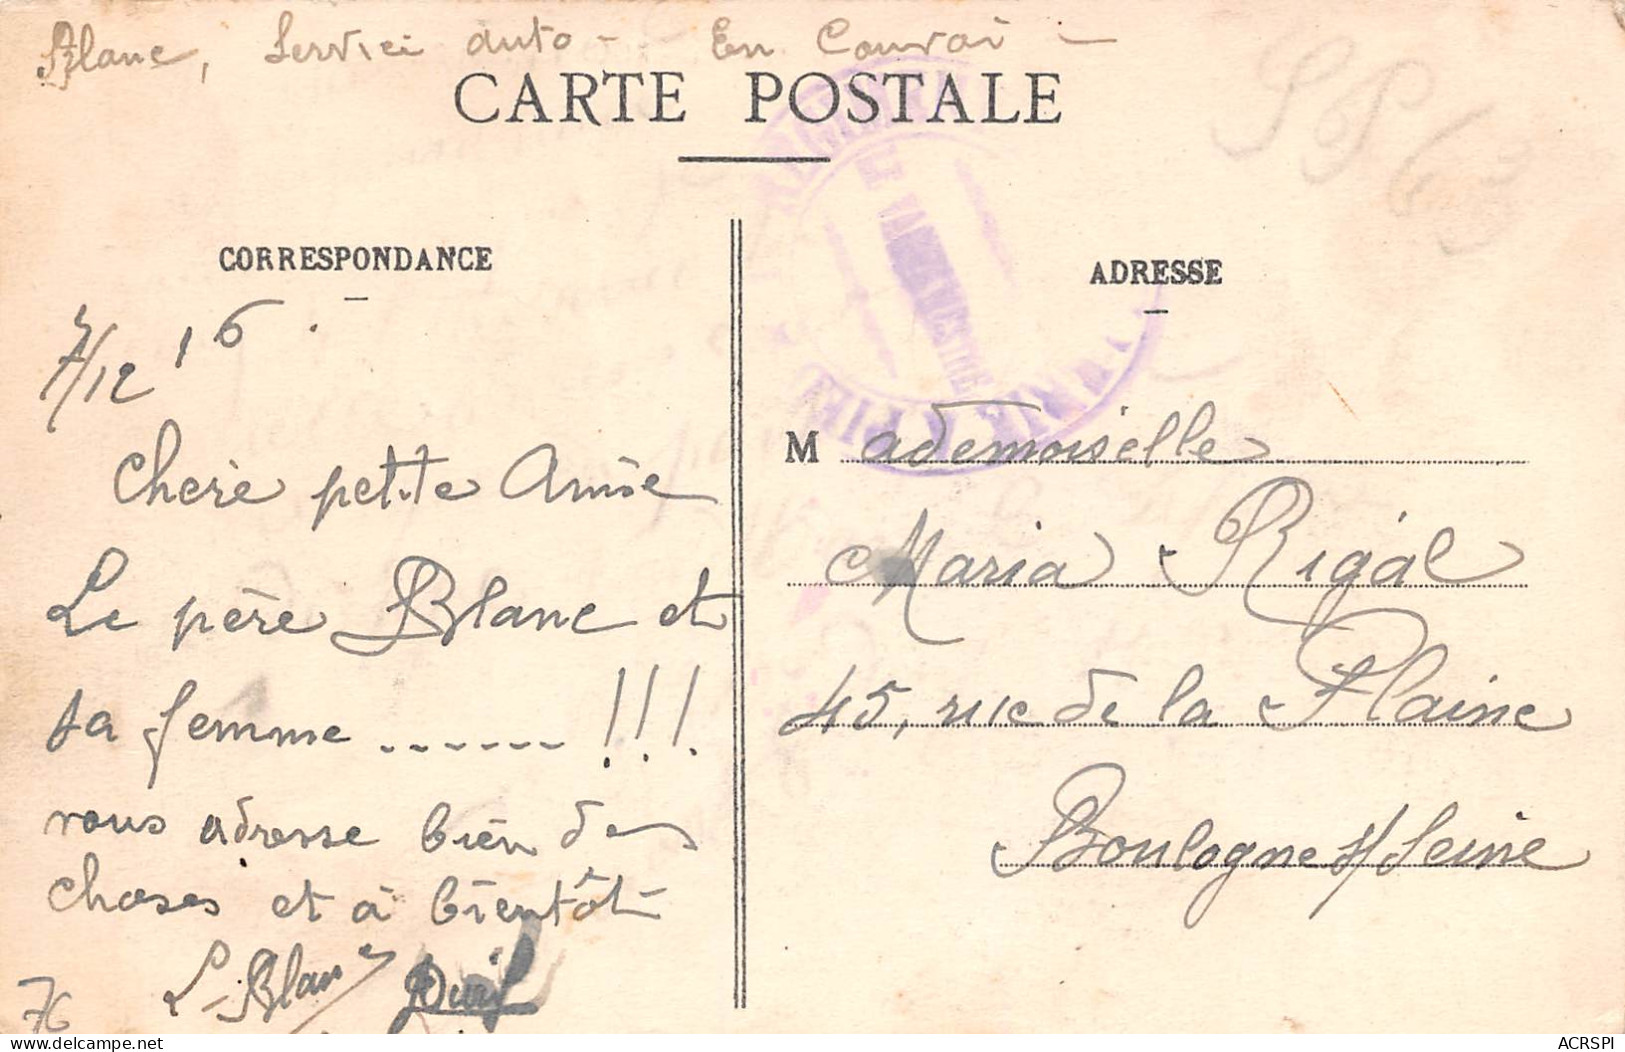 Blanc, Servici auto - En Convoi -
CARTE POSTALE
CORRESPONDANCE
ADRESSE
7/12 16.
Chère petite Amie
Le père Blanc et
sa femme ....... !!!
vous adresse bien des
choses et à bientôt
L. Blanc
76
Mademoiselle
Maria Rigal
45, rue de la Plaine
Boulogne s/ Seine
ACRSPI
www.delcampe.net